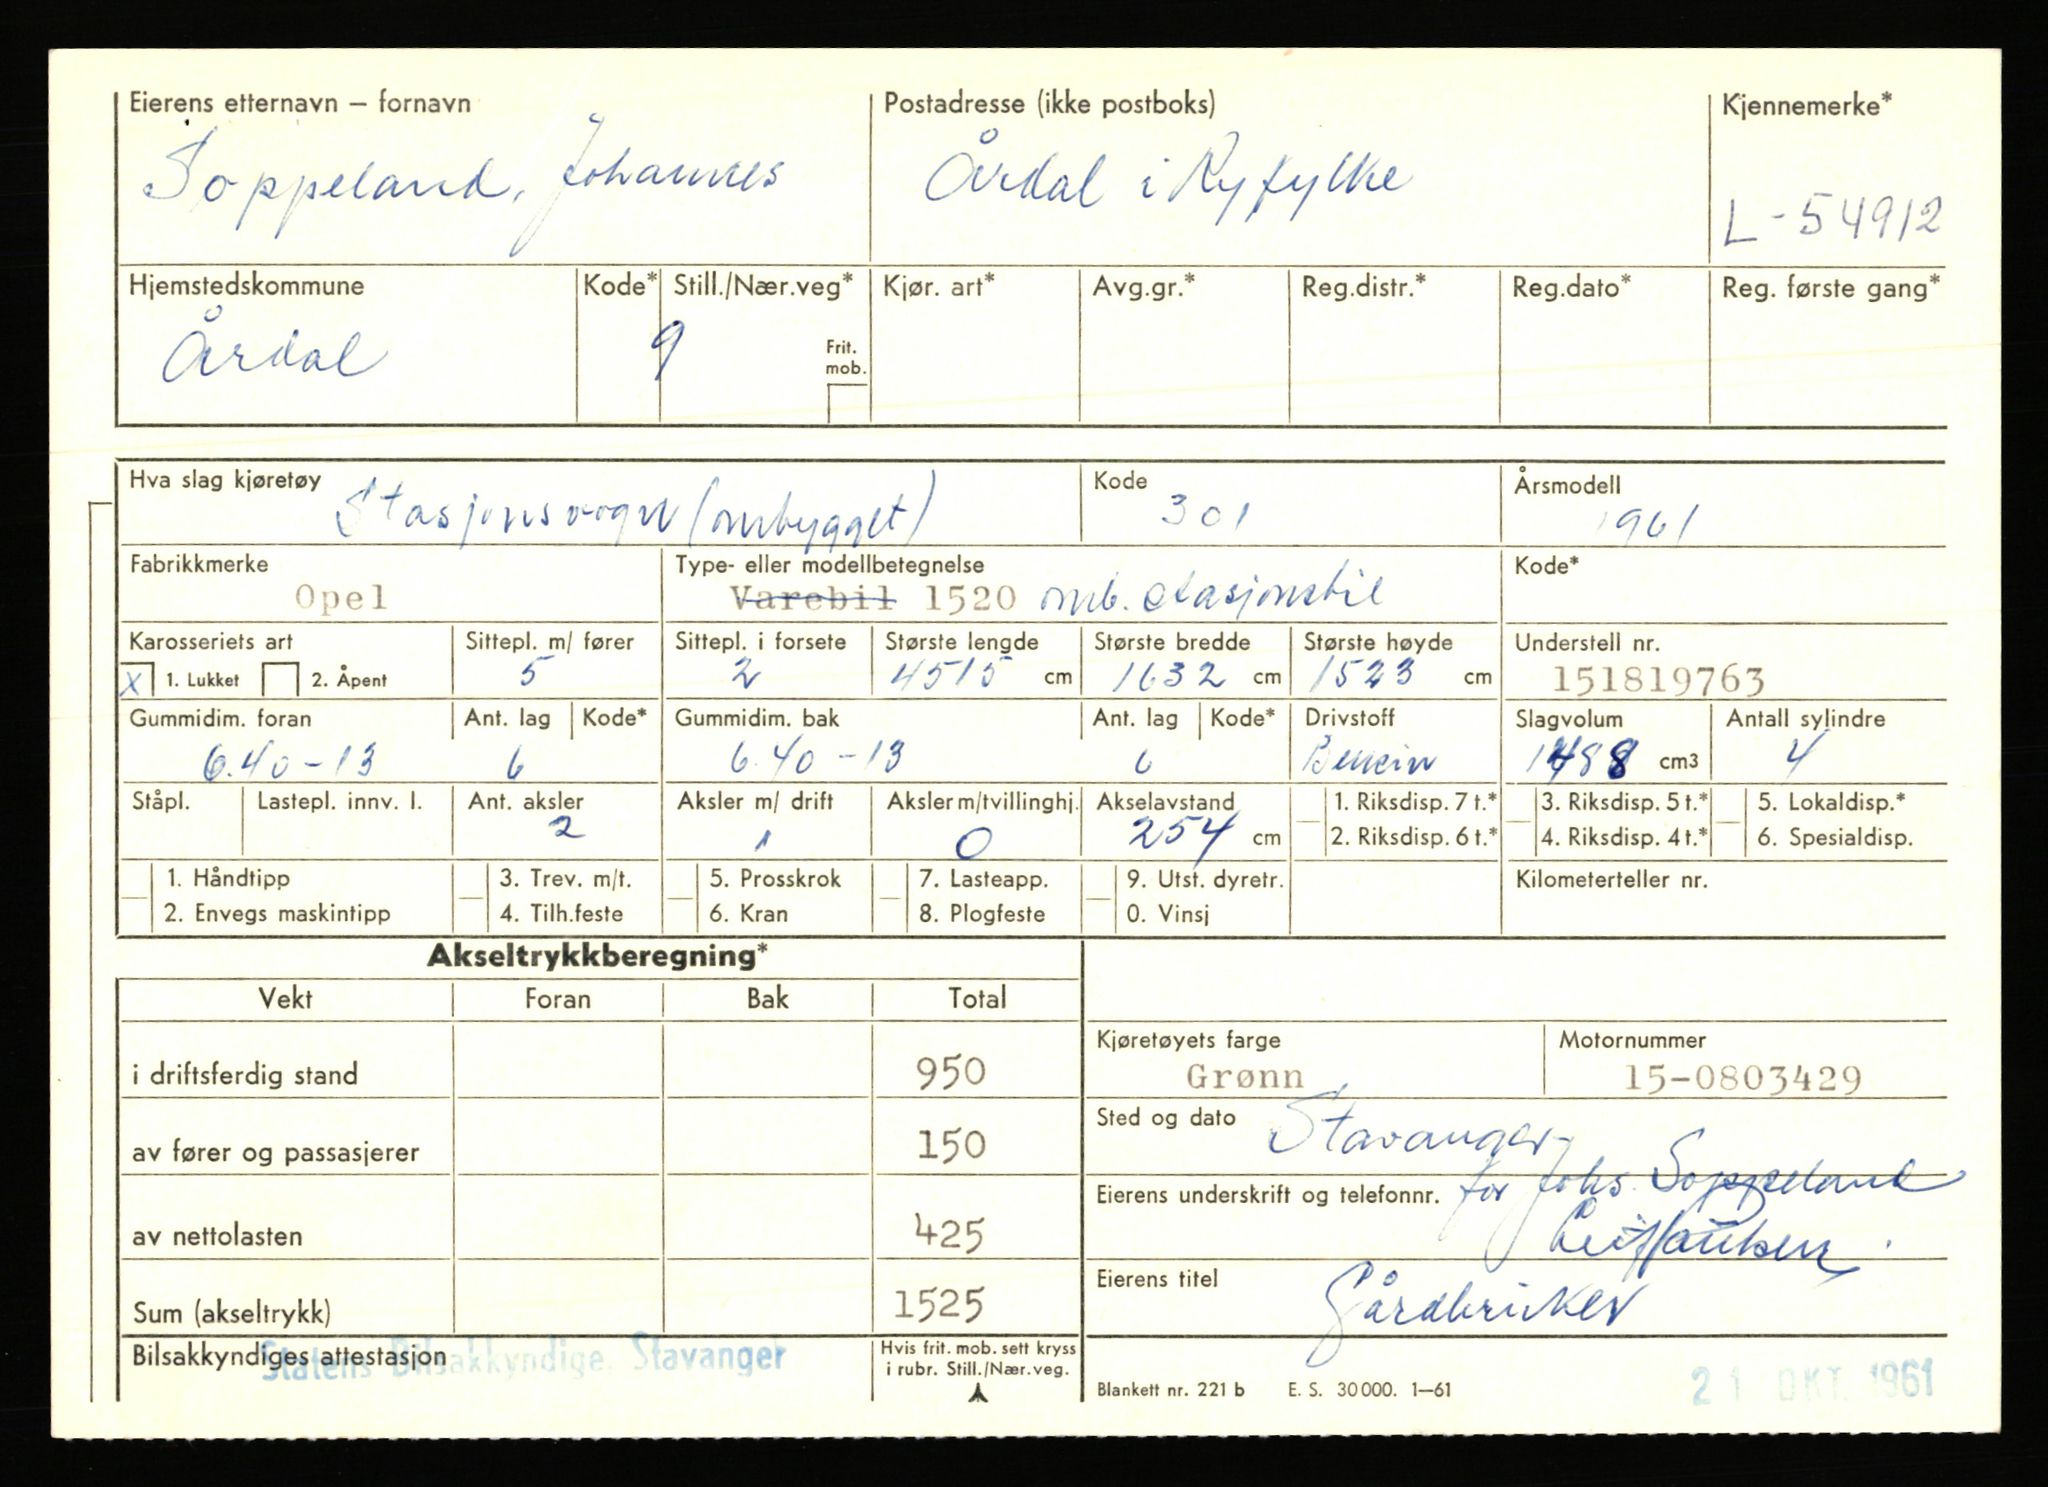 Eierens etternavn – fornavn Postadresse (ikke postboks) Kjennemerke*
Soppeland, Johannes Årdal i Ryfylke L-54912
Hjemstedskommune Kode* Still./Nær.veg* Kjør. art* Avg.gr.* Reg.distr.* Reg.dato* Reg. første gang*
Årdal 9 Frit. mob.
Hva slag kjøretøy Kode Årsmodell
Stasjonsvogn (ombygget) 301 1961
Fabrikkmerke Type- eller modellbetegnelse Kode*
Opel Varebil 1520 omb. stasjonsbil
Karosseriets art Sittepl. m/ fører Sittepl. i forsete Største lengde Største bredde Største høyde Understell nr.
X 1. Lukket 2. Åpent 5 2 4515 cm 1632 cm 1523 cm 151819763
Gummidim. foran Ant. lag Kode* Gummidim. bak Ant. lag Kode* Drivstoff Slagvolum Antall sylindre
6.40-13 6 6.40-13 6 Bensin 1488 cm3 4
Ståpl. Lastepl. innv. l. Ant. aksler Aksler m/ drift Aksler m/tvillinghj. Akselavstand 1. Riksdisp. 7 t.* 3. Riksdisp. 5 t.* 5. Lokaldisp.*
2 1 0 254 cm 2. Riksdisp. 6 t.* 4. Riksdisp. 4 t.* 6. Spesialdisp.
1. Håndtipp 3. Trev. m/t. 5. Prosskrok 7. Lasteapp. 9. Utst. dyretr. Kilometerteller nr.
2. Envegs maskintipp 4. Tilh.feste 6. Kran 8. Plogfeste 0. Vinsj
Akseltrykkberegning*
Vekt Foran Bak Total
i driftsferdig stand 950
av fører og passasjerer 150
av nettolasten 425
Sum (akseltrykk) 1525
Bilsakkyndiges attestasjon
Statens Bilsakkyndige. Stavanger
Hvis frit. mob. sett kryss
i rubr. Still./Nær.veg.
Kjøretøyets farge Motornummer
Grønn 15-0803429
Sted og dato Stavanger
Eierens underskrift og telefonnr. for Johs. Soppeland
Eierens titel Gårdbruker
Blankett nr. 221 b E. S. 30000. 1–61
21 OKT. 1961